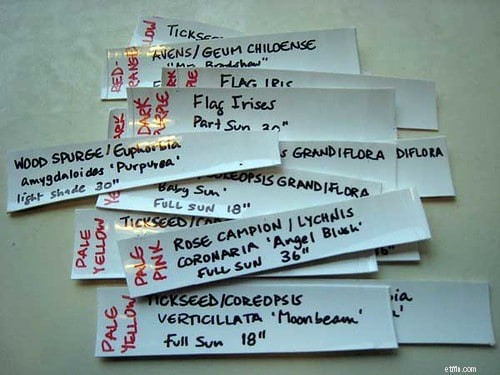 TICKSEE
LOW
AVENS/GEUM CHILOENSE
"Mrs. Bradshaw"
RED-
FLAG IRIS
DARK
PURPLE
Flag Irises
Part Sun 30"
ARK
WOOD SPURGE/Euphorbia
amygdaloides 'Purpurea'
light shade 30"
S GRANDIFLORA
DIFLORA
OREOPSIS GRANDIFLORA
Baby Sun'
FULL SUN 18"
PALE
YELLOW
TICKSEED/CO
PALE
PINK
ROSE CAMPION/LYCHNIS
CORONARIA 'Angel Blush'
FULL SUN 36"
PALE
YELLOW
TICKSEED/COREOPSIS
VERTICILLATA 'Moonbeam'
Full Sun 18"
ia
etffin.com